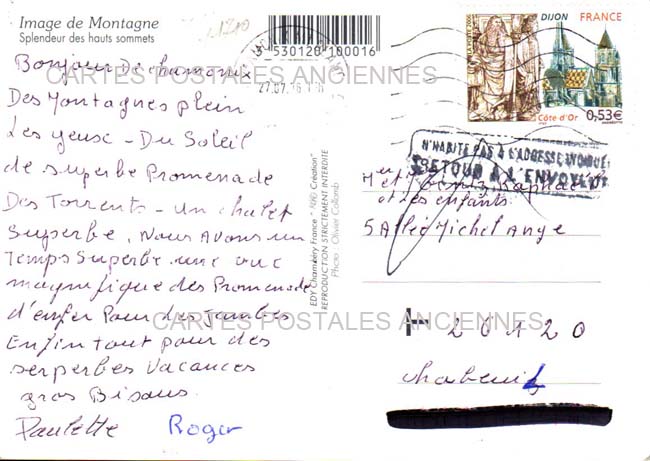 Image de Montagne
Splendeur des hauts sommets
1210
530120 100016
27.07.16
DIJON FRANCE
Côte d'Or
0,53€
N'HABITE PAS A L'ADRESSE INDIQUEE
RETOUR A L'ENVOYEUR
CARTES POSTALES ANCIENNES
Bonjour De chamonix
Des Montagnes plein
Les yeux - Du Soleil
de superbe Promenade
Des Torrents - un chalet
superbe, Nous Avons un
Temps superbe une vue
magnifique des Promenade
d'enfer Pour des Jambes
Enfin tout pour des
serperbes Vacances
gros Bisous
Paulette Roger
EDY Chambéry France Création"
REPRODUCTION STRICTEMENT INTERDITE
Photo : Olivier Collomb
et Les enfants
5 Allée Michel Ange
20120
CARTES POSTALES ANCIENNES